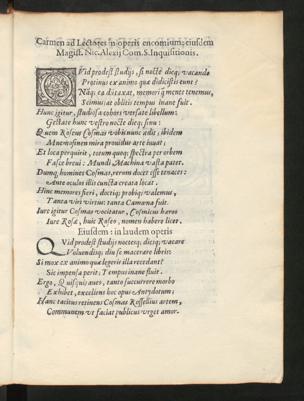 Carmen ad Lectores in operis encomium; eiusdem
Magist. Nic. Alexij Com. S. Inquisitionis.
QVid prodest studijs, si nocte dieq; vacando
Protinus ex animo quæ didicistis eunt?
Nãq; ea dũtaxat, memoriq́ mente tenemus,
Scimus; at oblitis tempus inane fuit.
Hunc igitur, studiosa cohors versate libellum:
Gestate hunc vestro nocte dieq; sinu:
Quem Roseus Cosmas vobis nunc ædit; ibidem
Mnemosinem mira prouidus arte iuuat;
Et loca perquirit, totumq; spectra per orbem
Fasce breui: Mundi Machina vasta patet.
Dumq, homines Cosmas, rerum docet esse tenaces:
Ante oculos illis cuncta creata locat.
Hinc memores fieri, doctiq; probiq; valemus,
Tanta viri virtus: tanta Camœna fuit.
Iure igitur Cosmas vocitatur, Cosmicus hæres
Iure Rosæ, huic Roseo, nomen habere licet.
Eiusdem: in laudem operis
QVid prodest studijs nocteq; dieq; vacare
Voluendisq; diu se macerare libris:
Si mox ex animo quæ legeris illa recedant?
Sic impensa perit: Tempus inane fluit.
Ergo, Quisquis aues, tanto succurrere morbo
Exhibet, excellens hoc opus Antydotum;
Hanc tacitus retinens Cosmas Rossellius artem,
Communem vt faciat publicus vrget amor.